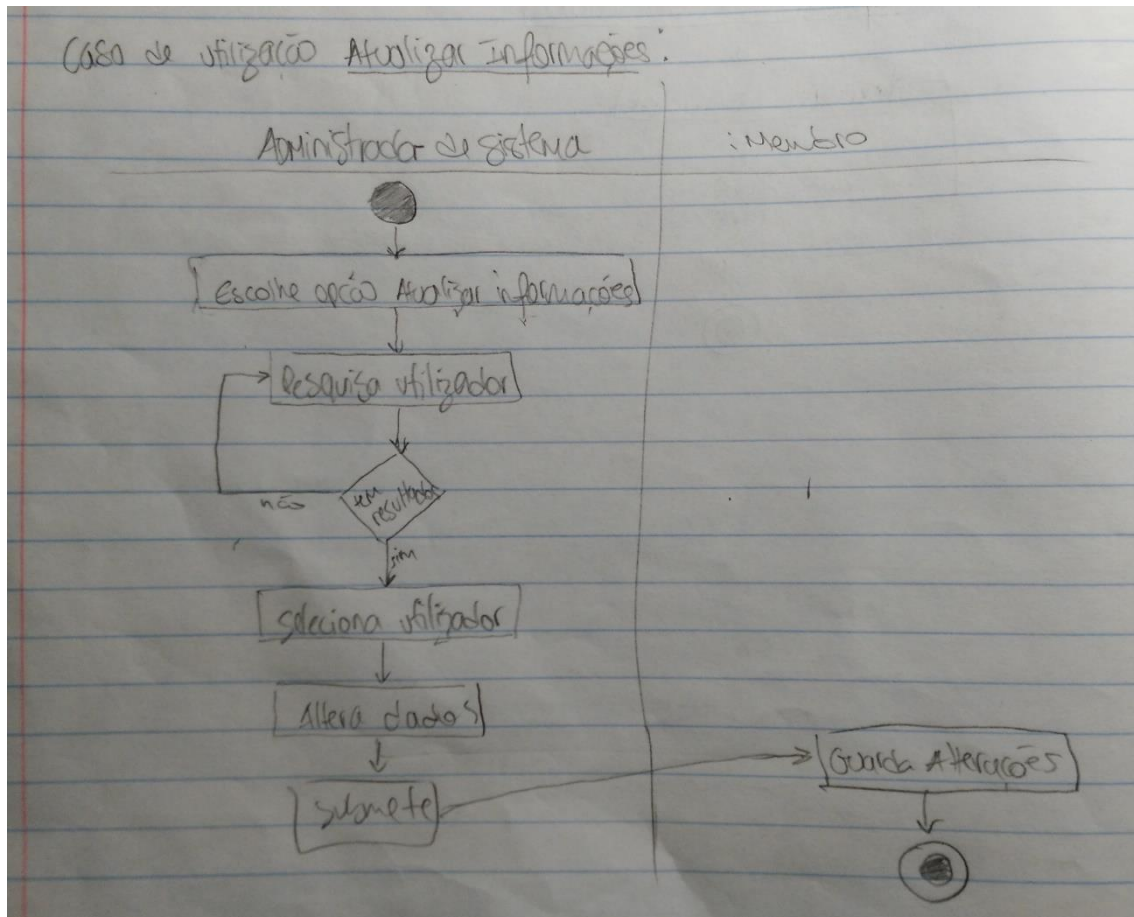 Caso de utilização Atualizar Informações:
Administrador de sistema
:Membro
Escolhe opção Atualizar informações
Pesquisa utilizador
tem
resultados
não
sim
Seleciona utilizador
Altera dados
Submete
Guarda Alterações